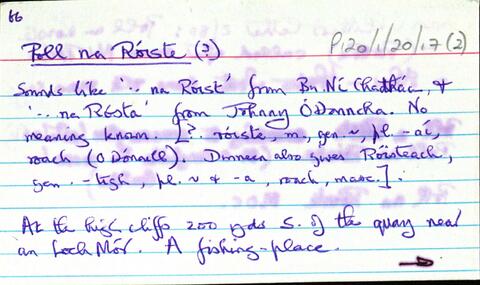 66
Poll na Róiste (?)
P120/1/20/17 (2)
Sounds like '-- na Róist' from Bn. Ní Chadháin, &
'-- na Rósta' from Johnny Ó Donncha. No
meaning known. [?. róiste, m., gen. ~, pl. -aí,
roach (O Dónaill). Dinneen also gives Róisteach,
gen. -tigh, pl. ~ & -a, roach, masc.].
At the high cliffs 200 yds S. of the quay near
an Loch Mór. A fishing-place.